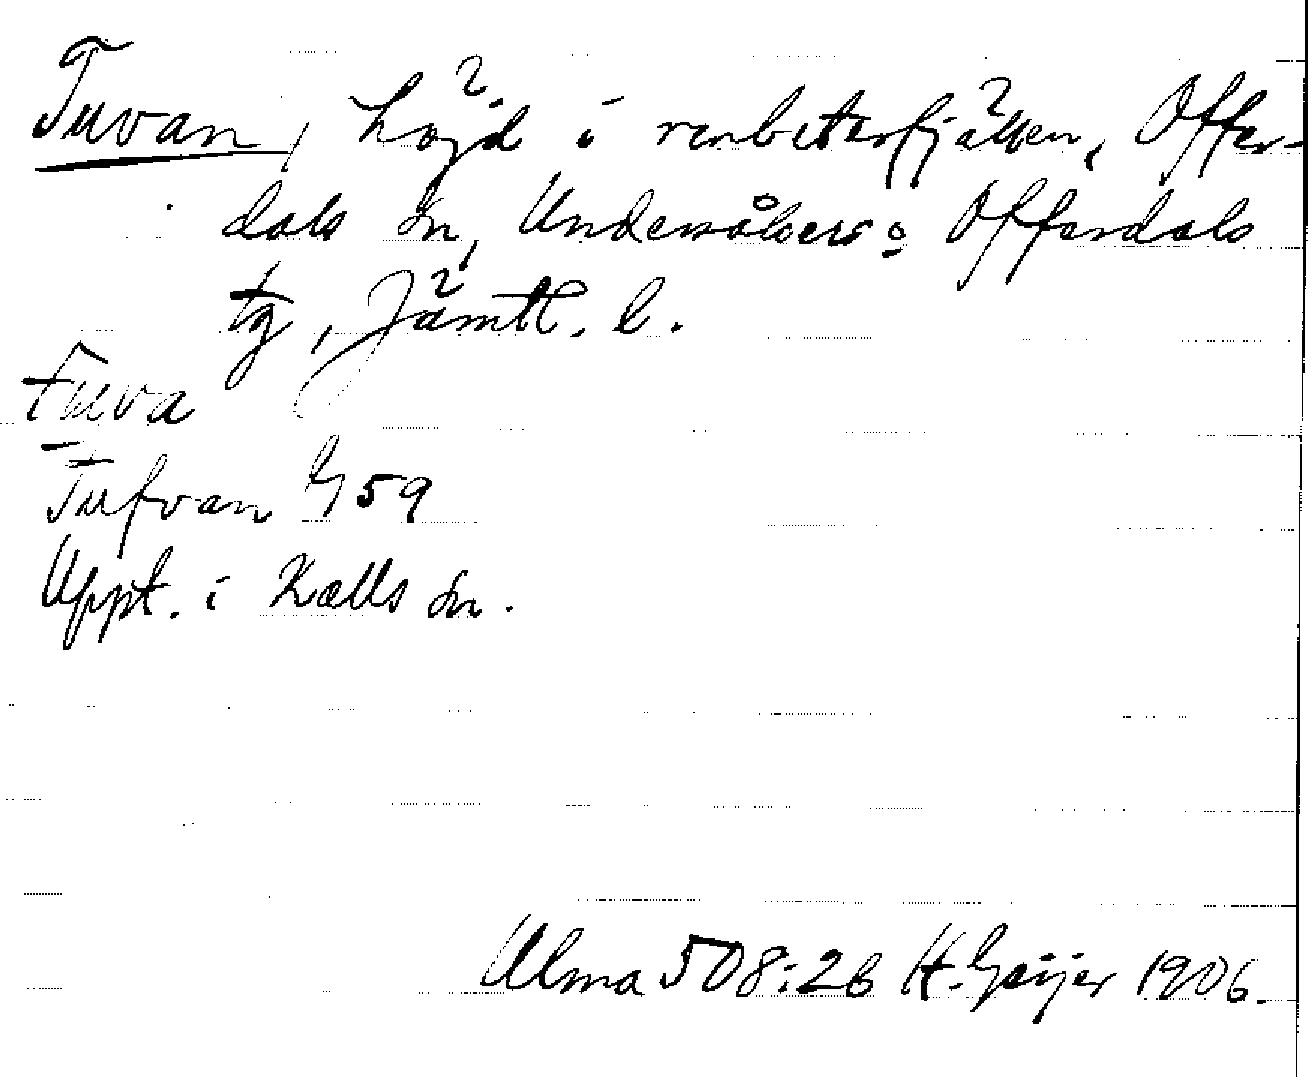 Tuvan, höjd i renbetesfjällen, Offer-
dals sn, Undersåkers o Offerdals
tg, Jämtl. l.
tuva
Tufvan G 59
Uppt. i Kalls sn.
Ulma 508:26 H. Geijer 1906.